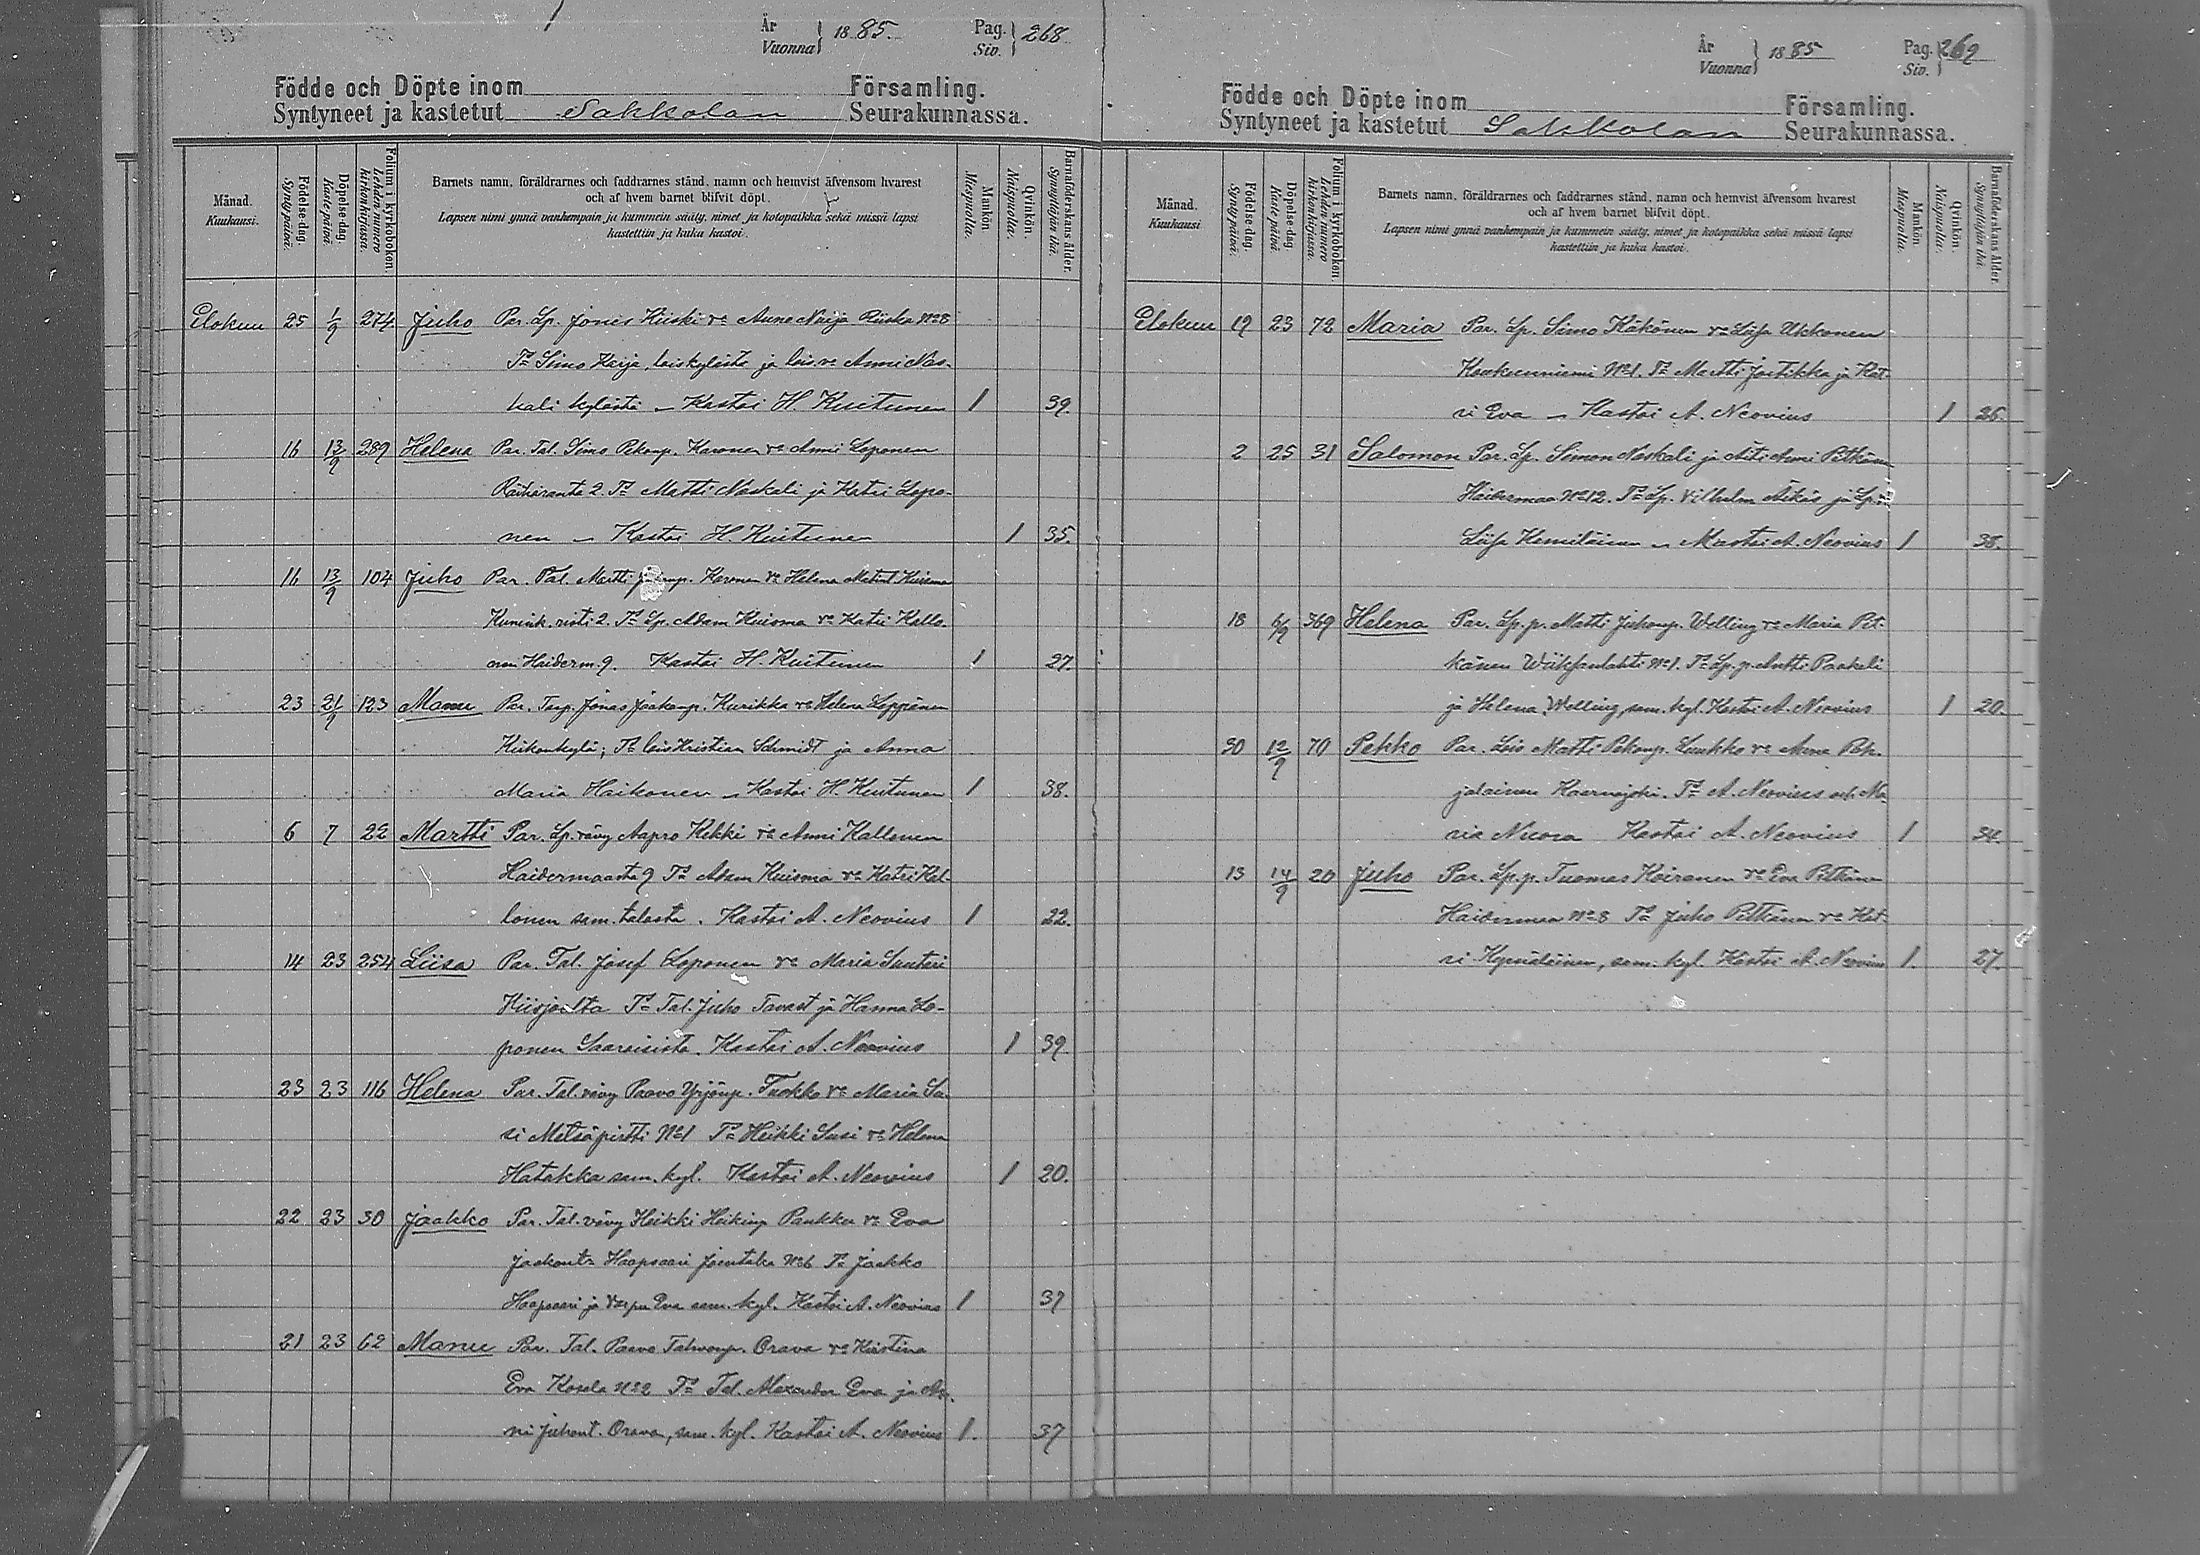 År
Vuonna } 1885.
Pag.
Siv. } 268
Födde och Döpte inom Församling.
Syntyneet ja kastetut Sakkolan Seurakunnassa.
Månad.
Kuukausi.
Födelse-dag.
Syntypäivä.
Döpelse-dag.
Kastepäivä.
Folium i kyrkoboken.
Lehden numero kirkonkirjassa.
Barnets namn, föräldrarnes och faddrarnes stånd, namn och hemvist äfvensom hvarest
och af hvem barnet blifvit döpt.
Lapsen nimi ynnä vanhempain ja kummein sääty, nimet ja kotopaikka sekä missä lapsi
kastettiin ja kuka kastoi.
Mankön
Miespuolia.
Qvinkön.
Naispuolia.
Barnaföderskans ålder.
Synnyttäjän ikä.
Elokuu 25 1/9 274 Juho Par. Lp. Jonis Kiiski va Anna Naija Riiska No 8
Ta Simo Keija, lois kylästä ja lois va Anni Nas-
kali kylästä – Kastoi H. Kuitunen 1 39.
16 13/9 289 Helena Par. Tal. Simo Pekanp. Karonen va Anni Loponen
Räihäranta 2. Ta Matti Naskali ja Katri Lopo-
nen – Kastoi H. Kuitunen 1 35.
16 13/9 104 Juho Par. Tal. Martti Karonen va Helena Matint. Kuisma
Kunink.risti 2. Ta Lp. Adam Kuisma va Katri Kallo-
nen Haiderm. 9. Kastoi H. Kuitunen 1 27.
23 21/9 123 Manu Par. Jonas Jaakonp. Kurikka va Helena Leppänen
Kirkonkylä; Ta lois Kristian Schmidt ja Anna
Maria Haikonen – Kastoi H. Kuitunen 1 38.
6 7 22 Martti Par. Lp. vävy Aapro Kekki va Anni Kallonen
Haidermaasta 9 Ta Adam Kuisma va Katri Kal-
lonen sam. talosta. Kastoi A. Neovius 1 22.
14 23 254 Liisa Par. Tal. Josef Loponen va Maria Santeri
Kiisjoelta Ta Tal. Juho Tavast ja Hanna Lo-
ponen Saaroisista. Kastoi A. Neovius 1 39.
23 23 116 Helena Par. Tal. vävy Paavo Yrjönp. Tuokko va Maria Su-
si Metsäpirtti No 1 Ta Heikki Susi va Helena
Hatakka sam. kyl. Kastoi A. Neovius 1 20.
22 23 30 Jaakko Par. Tal. vävy Heikki Heikinp. Paukku va Eva
Jaakont. Haapsaari Joentaka No 6 Ta Jaakko
Haapsaari ja Varpu Eva sam. kyl. Kastoi A. Neovius 1 37
21 23 62 Manu Par. Tal. Paavo Tahvonp. Orava va Kristina
Eva Kosela No 2 Ta Tal. Alexander Eva ja An-
ni Juhont. Orava, sam. kyl. Kastoi A. Neovius 1. 37
År
Vuonna } 1885
Pag.
Siv. } 269
Födde och Döpte inom Församling.
Syntyneet ja kastetut Sakkolan Seurakunnassa.
Månad.
Kuukausi
Födelse-dag.
Syntypäivä.
Döpelse-dag.
Kastepäivä.
Folium i kyrkoboken.
Lehden numero kirkonkirjassa.
Barnets namn, föräldrarnes och faddrarnes stånd, namn och hemvist äfvensom hvarest
och af hvem barnet blifvit döpt.
Lapsen nimi ynnä vanhempain ja kummein sääty, nimet ja kotopaikka sekä missä lapsi
kastettiin ja kuka kastoi.
Mankön
Miespuolia.
Qvinkön.
Naispuolia.
Barnaföderskans ålder.
Synnyttäjän ikä.
Elokuu 19 23 72 Maria Par. Lp. Simo Käkönen va Liisa Ukkonen
Koukunniemi No 1. Ta Martti Jortikka ja Kat-
ri Eva – Kastoi A. Neovius 1 26.
2 25 31 Salomon Par. Lp. Simon Naskali ja Äiti Anni Pitkänen
Haidermaa No 12. Ta Lp. Vilhelm Äikäs ja Lp. va
Liisa Kemiläinen – Kastoi A. Neovius 1 38.
18 6/9 369 Helena Par. Lp. p. Matti Juhonp. Welling va Maria Pit-
känen Wiiksanlahti No 1. Ta Lp. p. Antti Paakeli
ja Helena Welling, sam. kyl. Kastoi A. Neovius 1 20.
30 12/9 70 Pekko Par. Lois Matti Pekonp. Luukko va Anna Poh-
jalainen Kaarnajoki. Ta A. Neovius och Ma-
ria Nuora Kastoi A. Neovius 1 34.
13 14/9 20 Juho Par. Lp. p. Tuomas Koiranen va Eva Pitkänen
Haidermaa No 8 Ta Juho Pitkänen va Kat-
ri Kymäläinen, sam. kyl. Kastoi A. Neovius 1. 27.